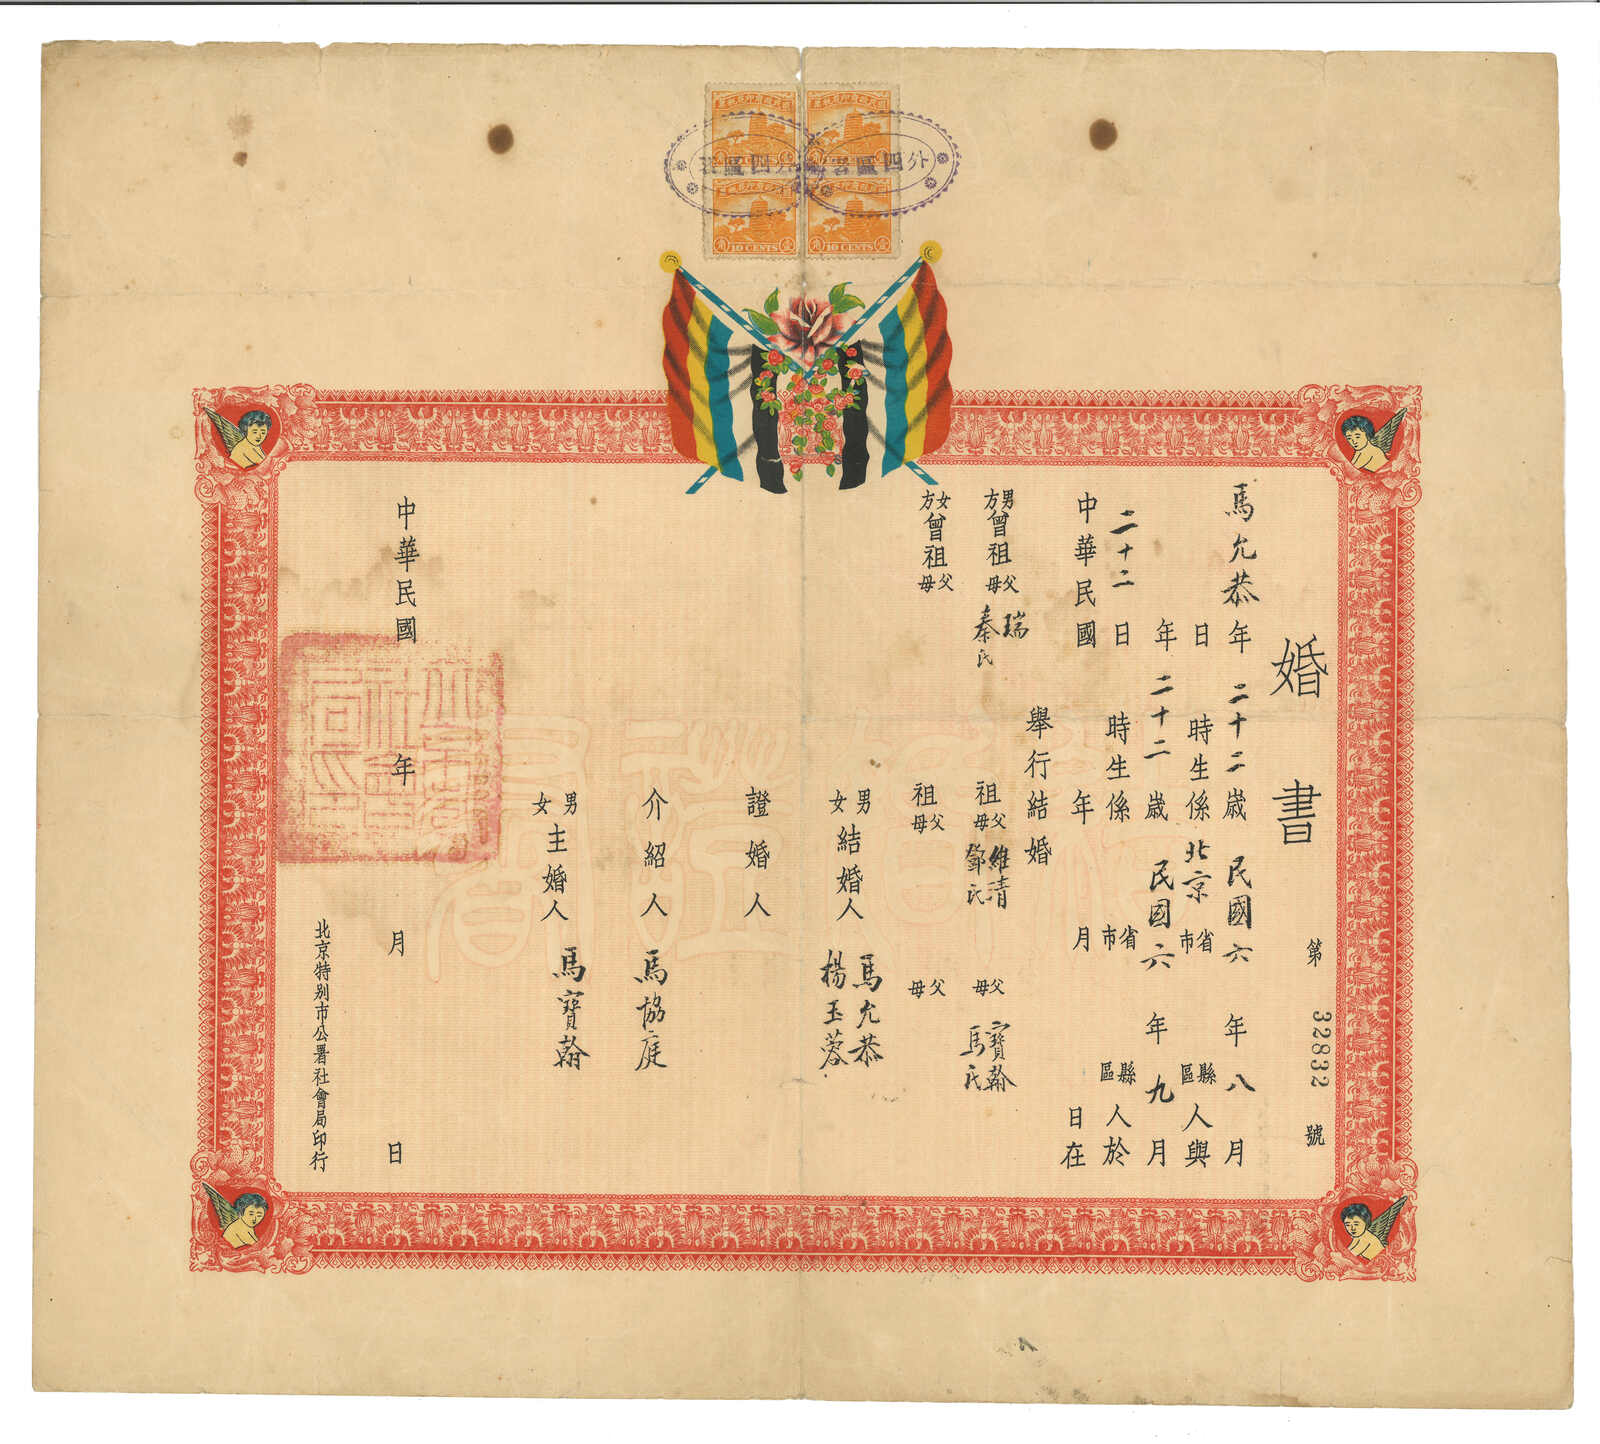 10 CENTS
10 CENTS
外四區署
外四區署
婚書
第 32832 號
馬允恭 年 二十二 歲 民國六 年 八 月
日 時生係 北京 省市 縣區 人與
年 二十二 歲 民國六 年 九 月
二十二 日 時生係 省市 縣區 人於
中華民國 年 月 日在
舉行結婚
男方 曾祖父母 瑞 秦氏 祖父母 維清 鄧氏 父母 寶翰 馬氏
女方 曾祖父母 祖父母 父母
男女 結婚人 馬允恭 楊玉蓉
證婚人
介紹人 馬協庭
男女 主婚人 馬寶翰
中華民國 年 月 日
北京特别市公署社會局印行